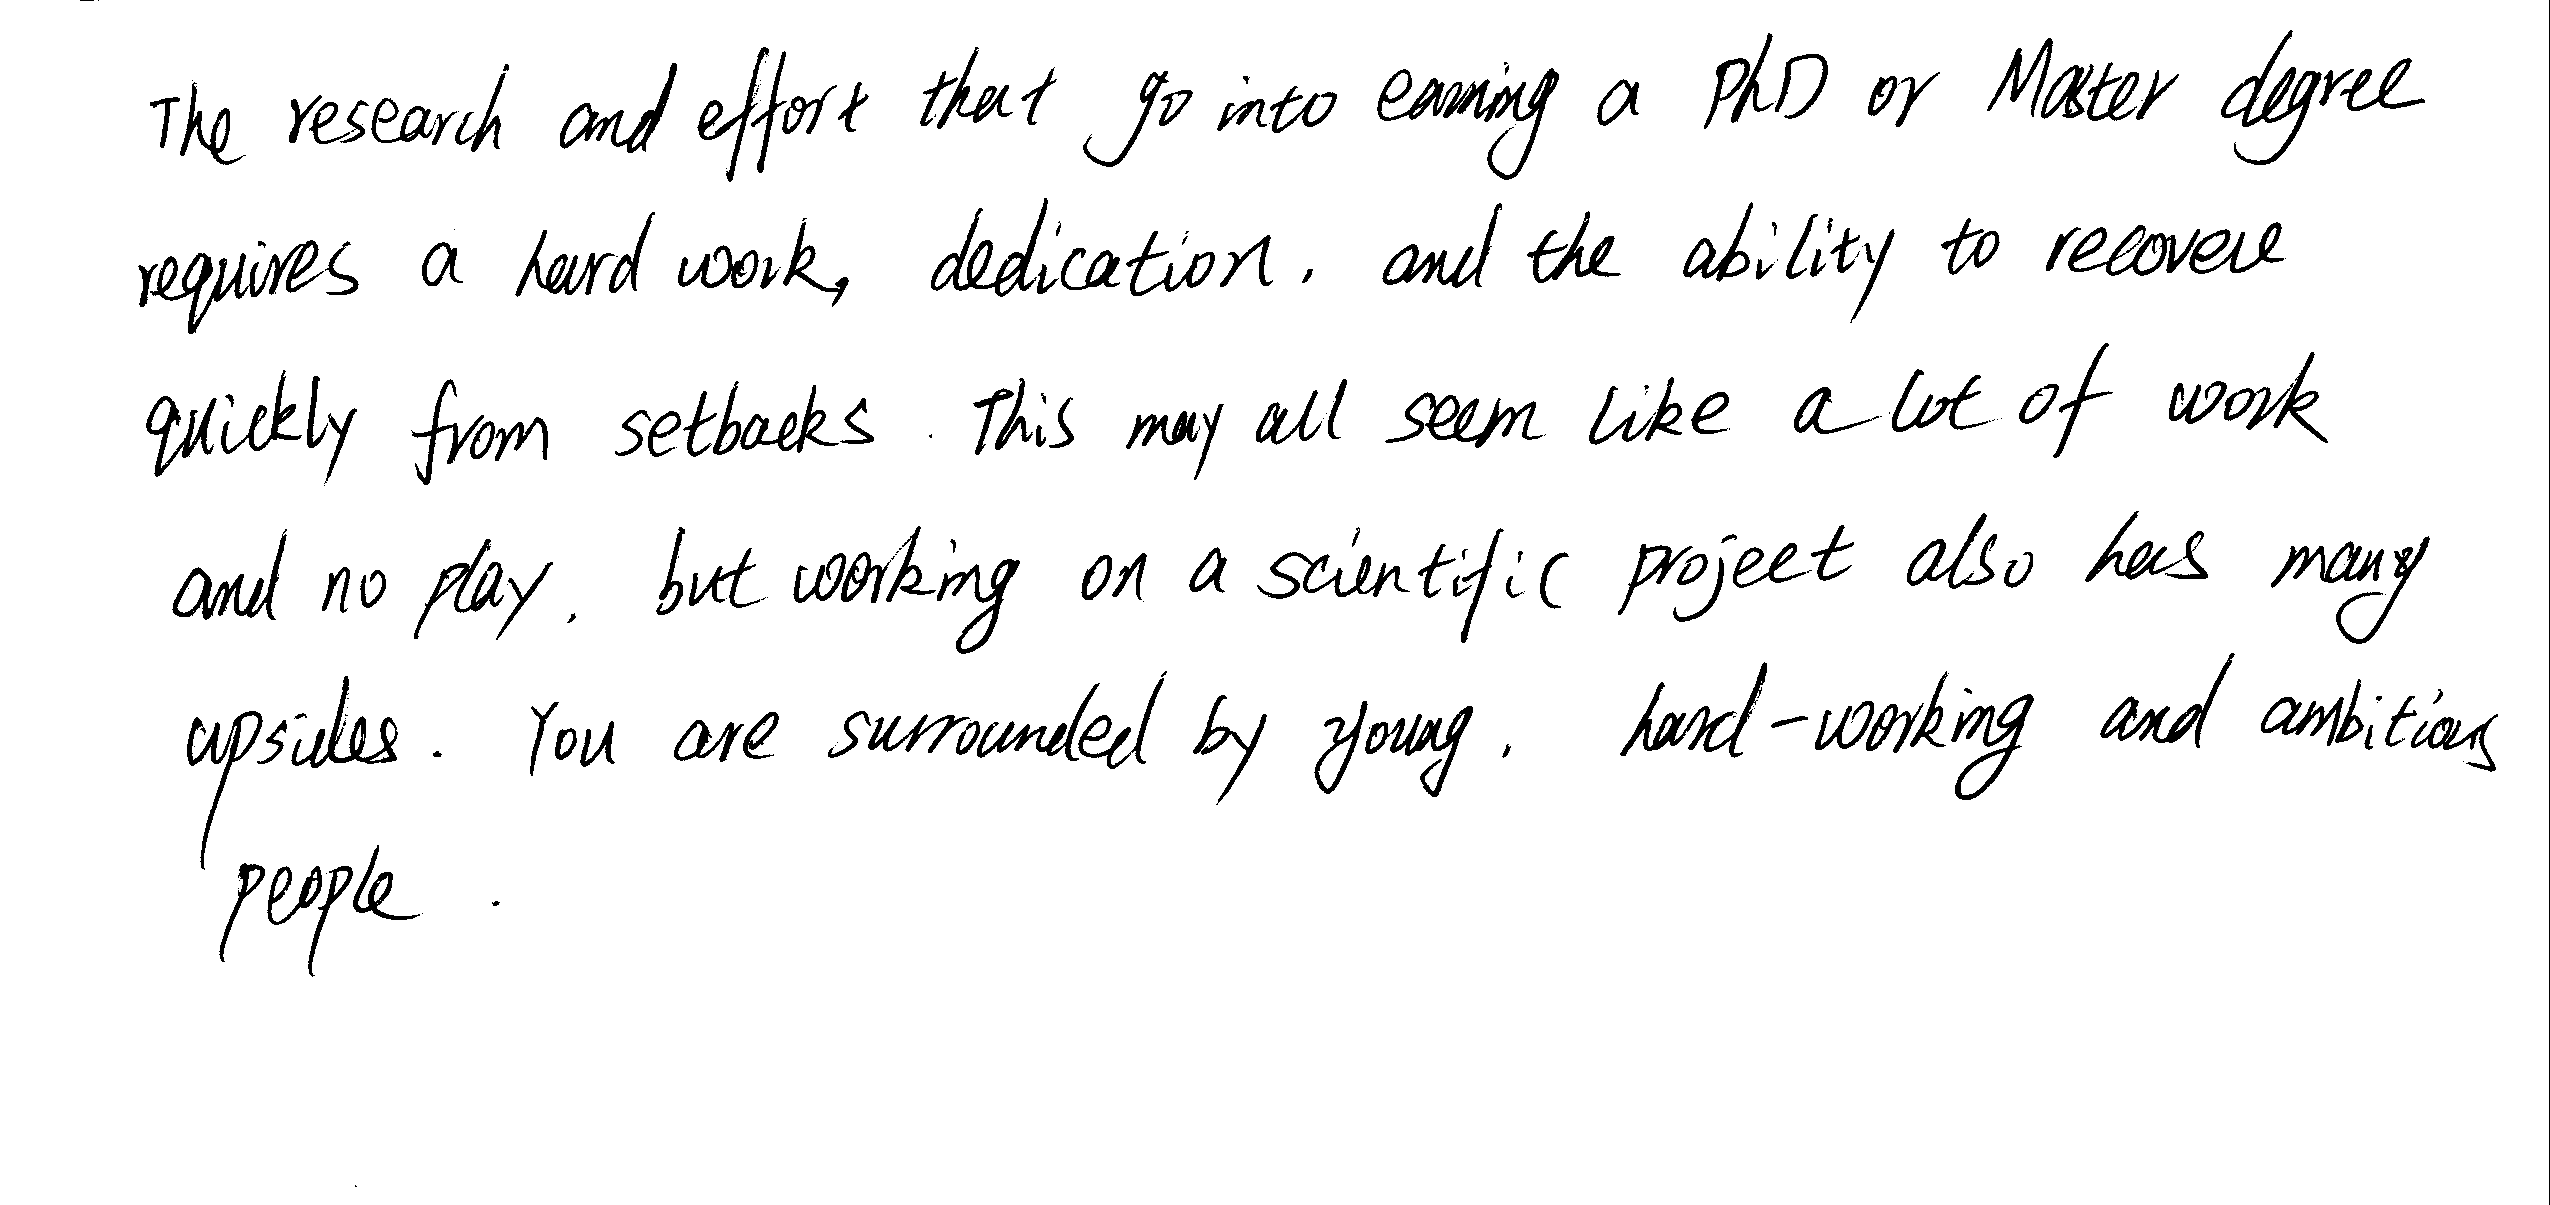 The research and effort that go into earning a PhD or Master degree
requires a hard work, dedication, and the ability to recovere
quickly from setbacks. This may all seem like a lot of work
and no play, but working on a scientific project also has many
upsides. You are surrounded by young, hard-working and ambitious
people.